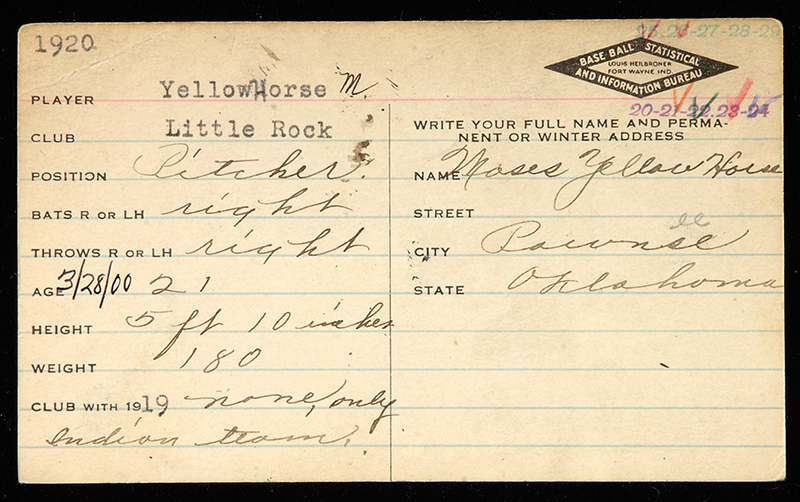 1920
25-26-27-28-29
BASE BALL STATISTICAL
LOUIS HEILBRONER
FORT WAYNE, IND
AND INFORMATION BUREAU
20-21-22-23-24
PLAYER YellowHorse M.
CLUB Little Rock
POSITION Pitcher.
BATS R OR LH right
THROWS R OR LH right
AGE 3/28/00 21
HEIGHT 5 ft 10 inches
WEIGHT 180
CLUB WITH 1919 none, only
Indian team.
WRITE YOUR FULL NAME AND PERMA-
NENT OR WINTER ADDRESS
NAME Moses Yellow Horse
STREET
ee
CITY Pawnee
STATE Oklahoma